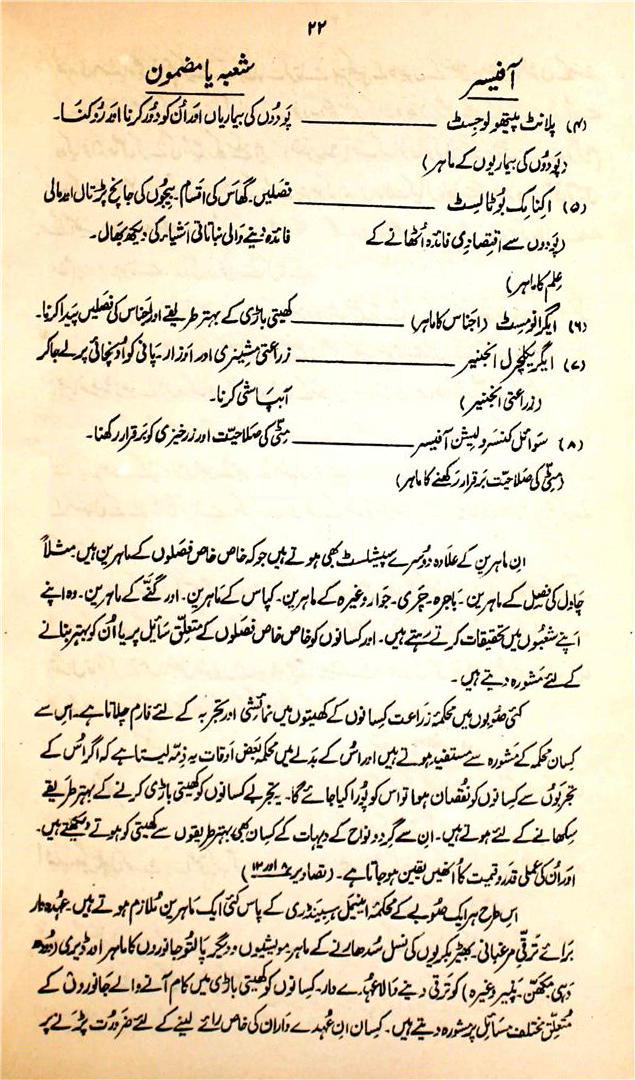 ۲۲
آفیسر شعبہ یا مضمون
(۴) پلانٹ پیتھولوجسٹ ــــــــ پودوں کی بیماریاں اور اُن کو دُور کرنا اور روکنا۔
(پودوں کی بیماریوں کے ماہر)
(۵) اکنامک بوٹانسٹ ــــــــ فصلیں۔ گھاس کی اقسام۔ بیجوں کی جانچ پڑتال اور مالی
(پودوں سے اقتصادی فائدہ اُٹھانے کے فائدہ دینے والی نباتاتی اشیاء کی دیکھ بھال۔
عِلم کا ماہر)
(۶) ایگرانومسٹ (اجناس کا ماہر) ــــــــ کھیتی باڑی کے بہتر طریقے اور اجناس کی فصلیں پیدا کرنا۔
(۷) ایگریکلچرل انجنیر ــــــــ زراعتی مشینری اور اوزار۔ پانی کو اُونچائی پر لے جا کر
(زراعتی انجنیر) آبپاشی کرنا۔
(۸) سوائل کنسرولیشن آفیسر ــــــــ مِٹّی کی صلاحیّت اور زرخیزی کو برقرار رکھنا۔
(مِٹّی کی صلاحیّت برقرار رکھنے کا ماہر)
اِن ماہرین کے علاوہ دُوسرے سپیشلسٹ بھی ہوتے ہیں جو کہ خاص خاص فصلوں کے ماہرین ہیں مثلاً
چاول کی فصل کے ماہرین۔ باجرہ۔ چری۔ جوار وغیرہ کے ماہرین۔ کپاس کے ماہرین۔ اور گنّے کے ماہرین۔ وہ اپنے
اپنے شعبوں میں تحقیقات کرتے رہتے ہیں۔ اور کسانوں کو خاص خاص فصلوں کے متعلّق مسائل پر یا اُن کو بہتر بنانے
کے لئے مشورہ دیتے ہیں۔
کئی صُوبوں میں محکمۂ زراعت کِسانوں کے کھیتوں میں نمائشی اور تجربہ کے لئے فارم چلاتا ہے۔ اس سے
کسان محکمہ کے مشورہ سے مستفید ہوتے ہیں اور اُس کے بدلے میں محکمہ بعض اوقات یہ ذِمّہ لیتا ہے کہ اگر اُس کے
تجربوں سے کسانوں کو نقصان ہوا تو اس کو پُورا کیا جائے گا۔ یہ تجربے کسانوں کو کھیتی باڑی کرنے کے بہتر طریقے
سِکھانے کے لئے ہوتے ہیں۔ ان سے گِرد و نواح کے دیہات کے کسان بھی بہتر طریقوں سے کھیتی کو ہوتے دیکھتے ہیں۔
اور اُن کی عملی قدر و قیمت کا اُنھیں یقین ہو جاتا ہے۔ (تصاویر ۸ اور ۱۳)
اِس طرح ہر ایک صُوبے کے محکمۂ اینیمل ہسبینڈری کے پاس کئی ایک ماہرین مُلازم ہوتے ہیں۔ عہدہ دار
برائے ترقیٔ مرغبانی۔ بھیڑ بکریوں کی نسل سُدھارنے کے ماہر مویشیوں و دیگر پالتو جانوروں کا ماہر اور ڈیری (دُودھ
دہی مکھّن۔ پنیر وغیرہ) کو ترقی دینے والا عہدے دار۔ کسانوں کو کھیتی باڑی میں کام آنے والے جانوروں کے
مُتعلّق مختلف مسائل پر مشورہ دیتے ہیں۔ کسان اِن عُہدے داران کی خاص رائے لینے کے لئے ضرورت پڑنے پر